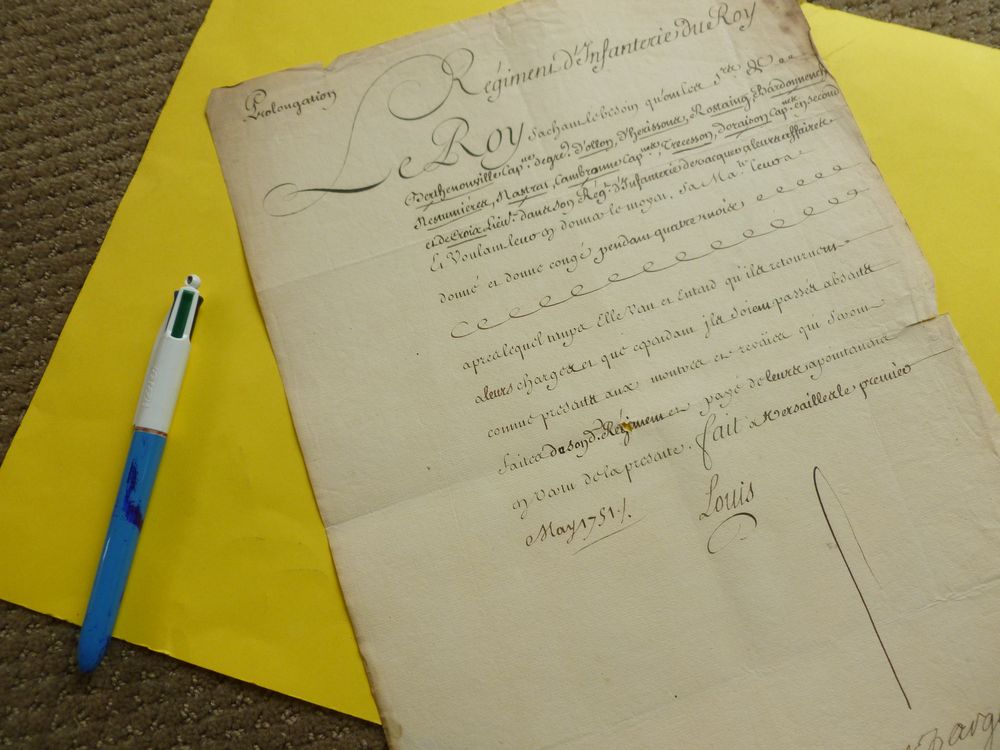 Prolongation
Régiment d'Infanterie du Roy
Le Roy sachant le besoin qu'ont les Srs
Berthenonville Capne degrers d'ollon, d'herissons, Rostaing, Chardonneuch
Mesnumiéres, Mastrai, Cambronne Capnes, Trecesson, Doraison Capnes en second
et de Croix Lieut. dans son Régt. d'Infanterie de vacquer a leurs affaires
Et Voulant leur en donner le moyen. Sa Maté. leur a
donné et donne congé pendant quatre mois,
apres lequel temps Elle Veut et Entend qu'ils retournent
a leurs charges et que cependant jls soient passés absents
comme presents aux montres et reveües qui seront
faites dusond. Régiment et payé de leurs apointements
en vertu de la presente. fait a Versailles le premier
May 1751 ./. Louis